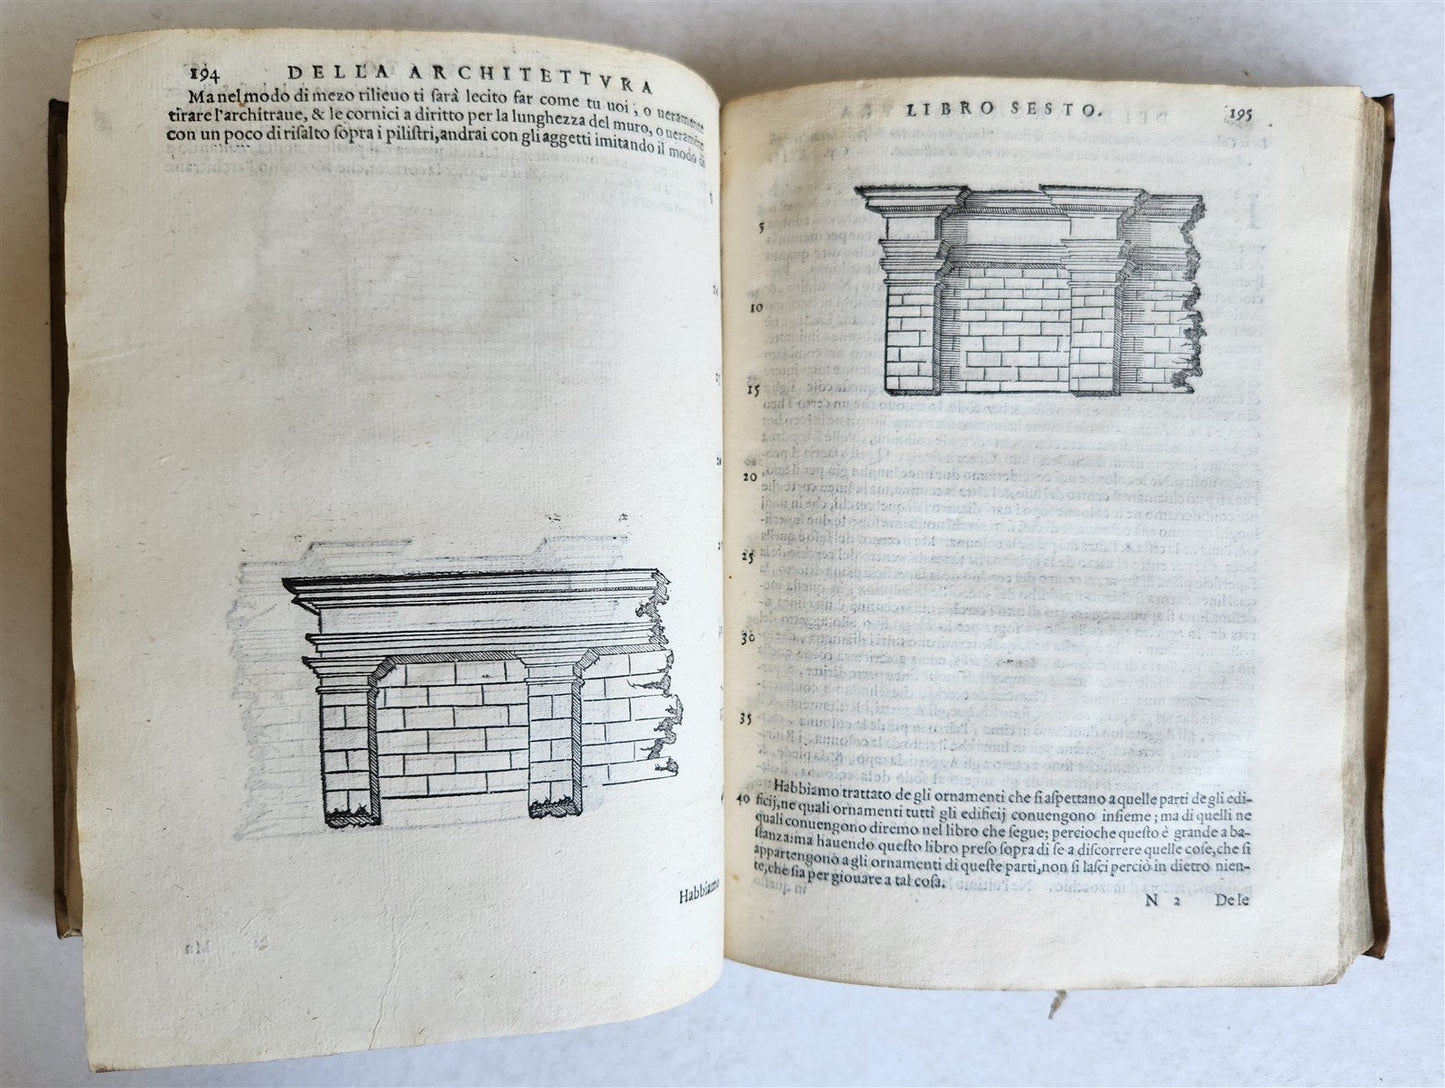 194 DELLA ARCHITETTVRA
Ma nel modo di mezo rilieuo ti sarà lecito far come tu uoi, o ueramente
tirare l'architraue, & le cornici a diritto per la lunghezza del muro, o ueramẽte
con un poco di risalto sopra i pilistri, andrai con gli aggetti imitando il modo di
Habbiamo
LIBRO SESTO. 195
5
10
15
20
25
30
35
Habbiamo trattato de gli ornamenti che si aspettano a quelle parti de gli edi-
40 ficij, ne quali ornamenti tutti gli edificij conuengono insieme; ma di quelli ne
quali conuengono diremo nel libro che segue; percioche questo è grande a ba-
stanza: ma hauendo questo libro preso sopra di se a discorrere quelle cose, che si
appartengono a gli ornamenti di queste parti, non si lasci perciò in dietro nien-
te, che sia per giouare a tal cosa.
N 2 De le